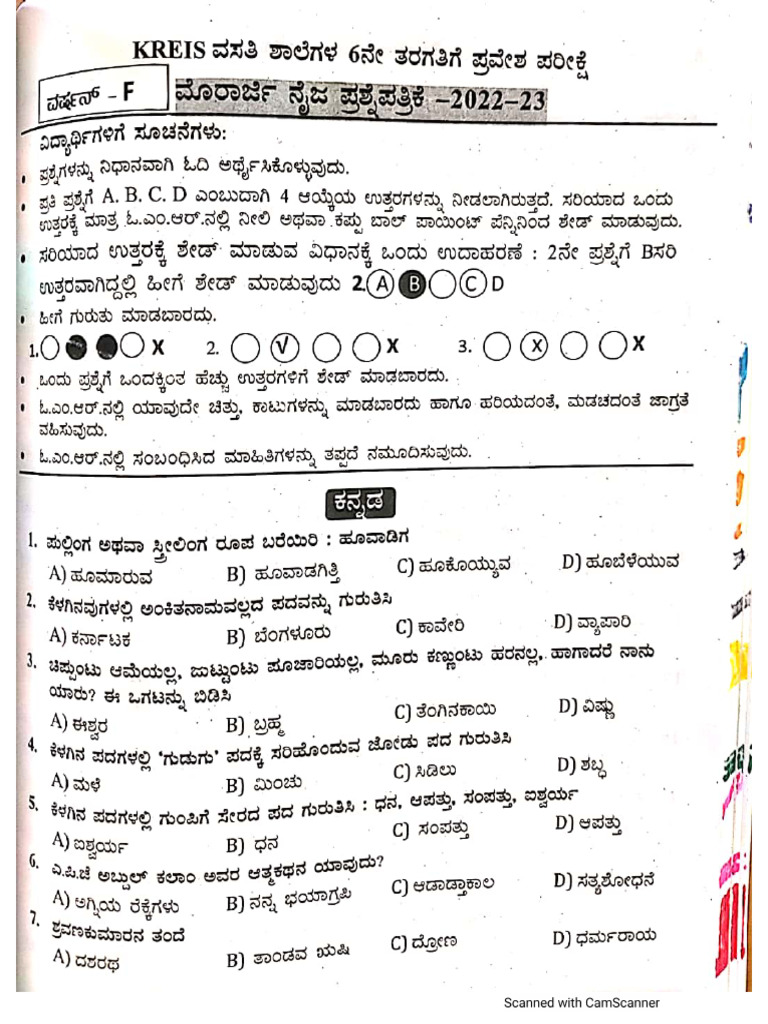 KREIS ವಸತಿ ಶಾಲೆಗಳ 6ನೇ ತರಗತಿಗೆ ಪ್ರವೇಶ ಪರೀಕ್ಷೆ
ವರ್ಷನ್ - F
ಮೊರಾರ್ಜಿ ನೈಜ ಪ್ರಶ್ನೆಪತ್ರಿಕೆ -2022-23
ವಿದ್ಯಾರ್ಥಿಗಳಿಗೆ ಸೂಚನೆಗಳು:
• ಪ್ರಶ್ನೆಗಳನ್ನು ನಿಧಾನವಾಗಿ ಓದಿ ಅರ್ಥೈಸಿಕೊಳ್ಳುವುದು.
• ಪ್ರತಿ ಪ್ರಶ್ನೆಗೆ A. B. C. D ಎಂಬುದಾಗಿ 4 ಆಯ್ಕೆಯ ಉತ್ತರಗಳನ್ನು ನೀಡಲಾಗಿರುತ್ತದೆ. ಸರಿಯಾದ ಒಂದು
ಉತ್ತರಕ್ಕೆ ಮಾತ್ರ ಓ.ಎಂ.ಆರ್.ನಲ್ಲಿ ನೀಲಿ ಅಥವಾ ಕಪ್ಪು ಬಾಲ್ ಪಾಯಿಂಟ್ ಪೆನ್ನಿನಿಂದ ಶೇಡ್ ಮಾಡುವುದು.
• ಸರಿಯಾದ ಉತ್ತರಕ್ಕೆ ಶೇಡ್ ಮಾಡುವ ವಿಧಾನಕ್ಕೆ ಒಂದು ಉದಾಹರಣೆ : 2ನೇ ಪ್ರಶ್ನೆಗೆ Bಸರಿ
ಉತ್ತರವಾಗಿದ್ದಲ್ಲಿ ಹೀಗೆ ಶೇಡ್ ಮಾಡುವುದು 2. A B C D
• ಹೀಗೆ ಗುರುತು ಮಾಡಬಾರದು.
1. X 2. √ X 3. X X
• ಒಂದು ಪ್ರಶ್ನೆಗೆ ಒಂದಕ್ಕಿಂತ ಹೆಚ್ಚು ಉತ್ತರಗಳಿಗೆ ಶೇಡ್ ಮಾಡಬಾರದು.
• ಓ.ಎಂ.ಆರ್.ನಲ್ಲಿ ಯಾವುದೇ ಚಿತ್ತು, ಕಾಟುಗಳನ್ನು ಮಾಡಬಾರದು ಹಾಗೂ ಹರಿಯದಂತೆ, ಮಡಚದಂತೆ ಜಾಗ್ರತೆ
ವಹಿಸುವುದು.
• ಓ.ಎಂ.ಆರ್.ನಲ್ಲಿ ಸಂಬಂಧಿಸಿದ ಮಾಹಿತಿಗಳನ್ನು ತಪ್ಪದೆ ನಮೂದಿಸುವುದು.
ಕನ್ನಡ
1. ಪುಲ್ಲಿಂಗ ಅಥವಾ ಸ್ತ್ರೀಲಿಂಗ ರೂಪ ಬರೆಯಿರಿ : ಹೂವಾಡಿಗ
A) ಹೂಮಾರುವ B) ಹೂವಾಡಗಿತ್ತಿ C) ಹೂಕೊಯ್ಯುವ D) ಹೂಬೆಳೆಯುವ
2. ಕೆಳಗಿನವುಗಳಲ್ಲಿ ಅಂಕಿತನಾಮವಲ್ಲದ ಪದವನ್ನು ಗುರುತಿಸಿ
A) ಕರ್ನಾಟಕ B) ಬೆಂಗಳೂರು C) ಕಾವೇರಿ D) ವ್ಯಾಪಾರಿ
3. ಚಿಪ್ಪುಂಟು ಆಮೆಯಲ್ಲ, ಜುಟ್ಟುಂಟು ಪೂಜಾರಿಯಲ್ಲ, ಮೂರು ಕಣ್ಣುಂಟು ಹರನಲ್ಲ, ಹಾಗಾದರೆ ನಾನು
ಯಾರು? ಈ ಒಗಟನ್ನು ಬಿಡಿಸಿ
A) ಈಶ್ವರ B) ಬ್ರಹ್ಮ C) ತೆಂಗಿನಕಾಯಿ D) ವಿಷ್ಣು
4. ಕೆಳಗಿನ ಪದಗಳಲ್ಲಿ 'ಗುಡುಗು' ಪದಕ್ಕೆ ಸರಿಹೊಂದುವ ಜೋಡು ಪದ ಗುರುತಿಸಿ
A) ಮಳೆ B) ಮಿಂಚು C) ಸಿಡಿಲು D) ಶಬ್ಧ
5. ಕೆಳಗಿನ ಪದಗಳಲ್ಲಿ ಗುಂಪಿಗೆ ಸೇರದ ಪದ ಗುರುತಿಸಿ : ಧನ, ಆಪತ್ತು, ಸಂಪತ್ತು, ಐಶ್ವರ್ಯ
A) ಐಶ್ವರ್ಯ B) ಧನ C) ಸಂಪತ್ತು D) ಆಪತ್ತು
6. ಎ.ಪಿ.ಜೆ ಅಬ್ದುಲ್ ಕಲಾಂ ಅವರ ಆತ್ಮಕಥನ ಯಾವುದು?
A) ಅಗ್ನಿಯ ರೆಕ್ಕೆಗಳು B) ನನ್ನ ಭಯಾಗ್ರಫಿ C) ಆಡಾಡ್ತಾಕಾಲ D) ಸತ್ಯಶೋಧನೆ
7. ಶ್ರವಣಕುಮಾರನ ತಂದೆ
A) ದಶರಥ B) ತಾಂಡವ ಋಷಿ C) ದ್ರೋಣ D) ಧರ್ಮರಾಯ
Scanned with CamScanner